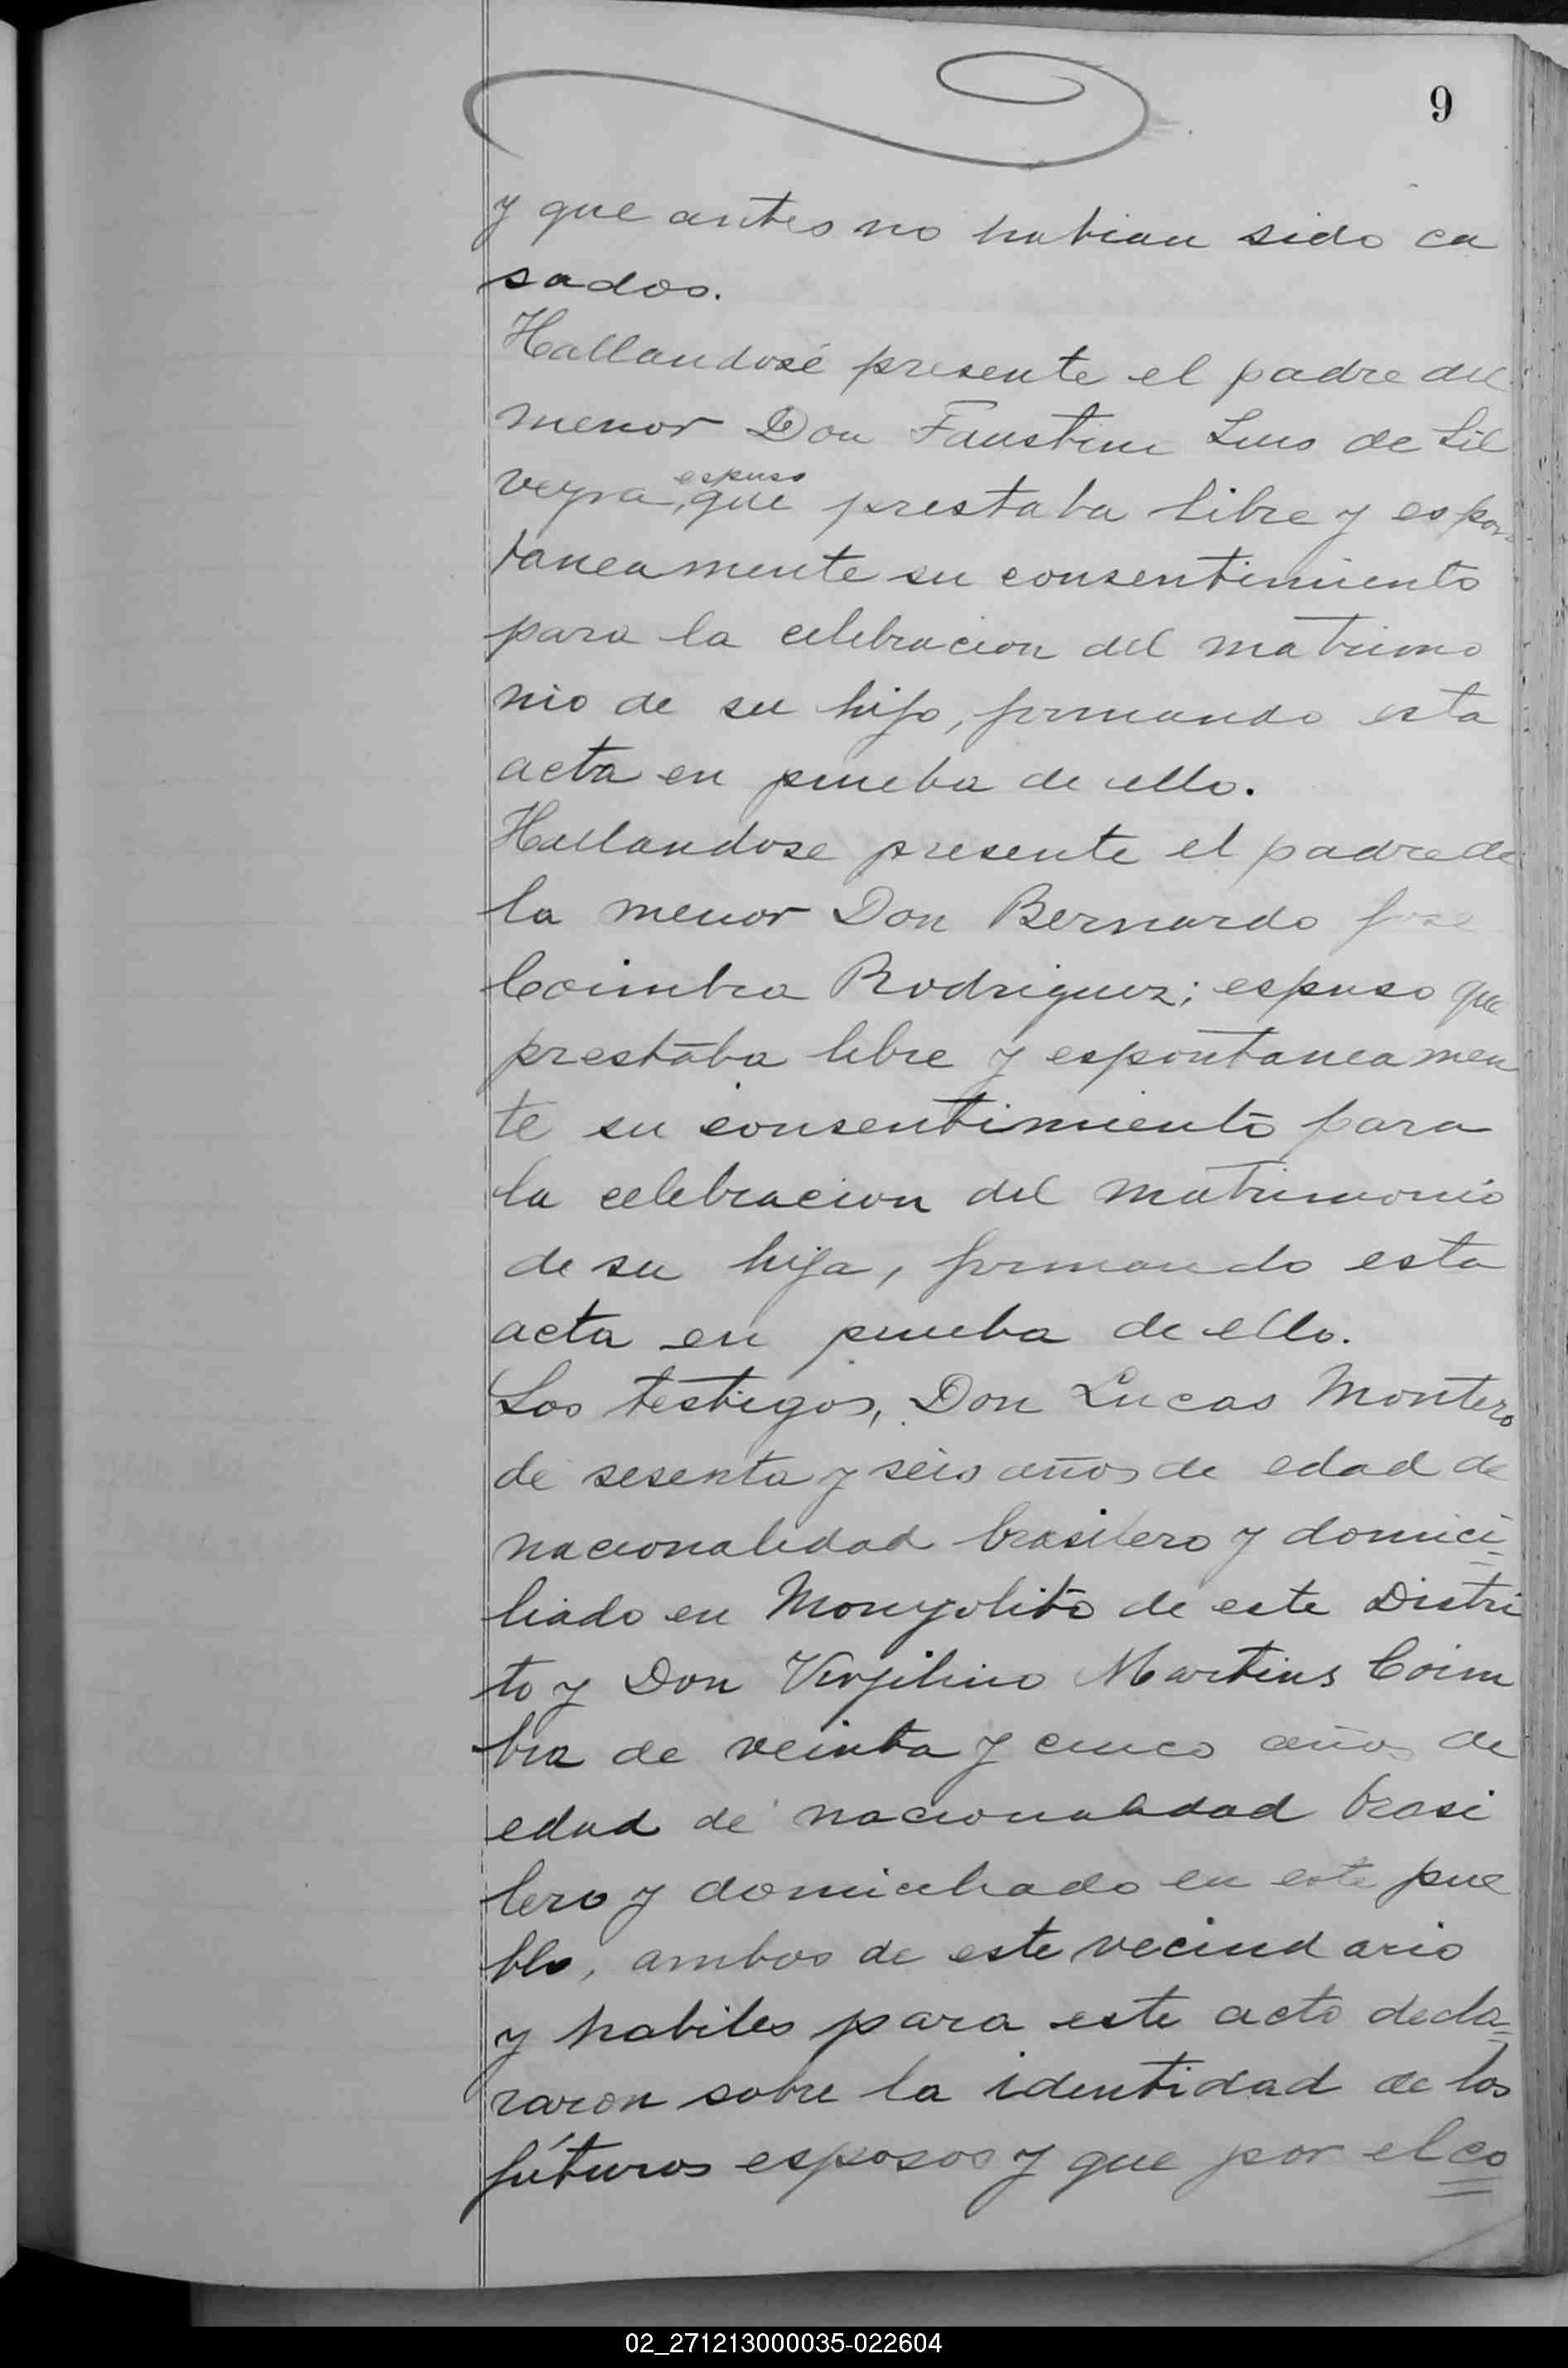 9
y que antes no habian sido ca
sados.
Hallandosé presente el padre del
menor Don Faustino Luis de Sil
veyra, espuso que prestaba libre y espon
taneamente su consentimiento
para la celebracion del matrimo
nio de su hijo, firmando esta
acta en prueba de ello.
Hallandose presente el padre de
la menor Don Bernardo José
Coimbra Rodriguez; espuso que
prestaba libre y espontaneamen
te su consentimiento para
la celebracion del matrimonio
de su hija, firmando esta
acta en prueba de ello.
Los testigos, Don Lucas Montero
de sesenta y seis años de edad de
nacionalidad brasilero y domici=
liado en Monzolito de este Distri
to y Don Virjilino Martins Coim
bra de veinta y cinco años de
edad de nacionalidad brasi
lero y domiciliado en este pue
blo, ambos de este vecindario
y habiles para este acto decla=
raron sobre la identidad de los
fúturos esposos y que por el co
02_271213000035-022604